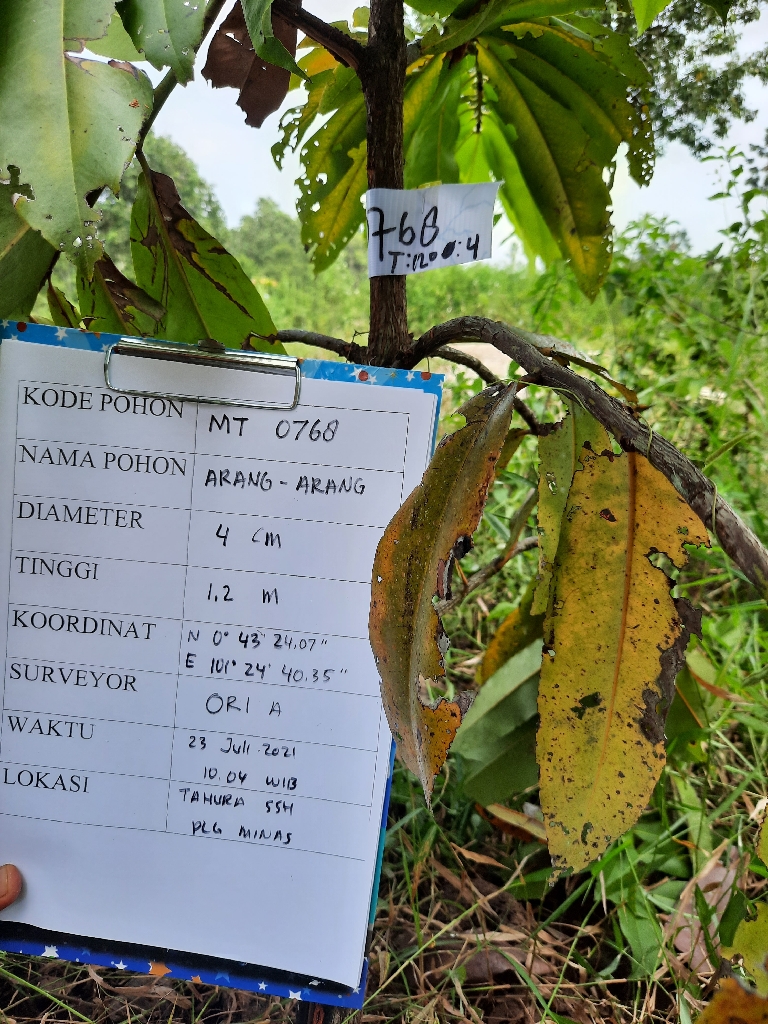 768
T:120 D:4
KODE POHON MT 0768
NAMA POHON ARANG - ARANG
DIAMETER 4 CM
TINGGI 1.2 M
KOORDINAT N 0° 43' 24.07"
E 101° 24' 40.35"
SURVEYOR ORI A
WAKTU 23 Juli 2021
10.04 WIB
LOKASI TAHURA SSH
PLG MINAS